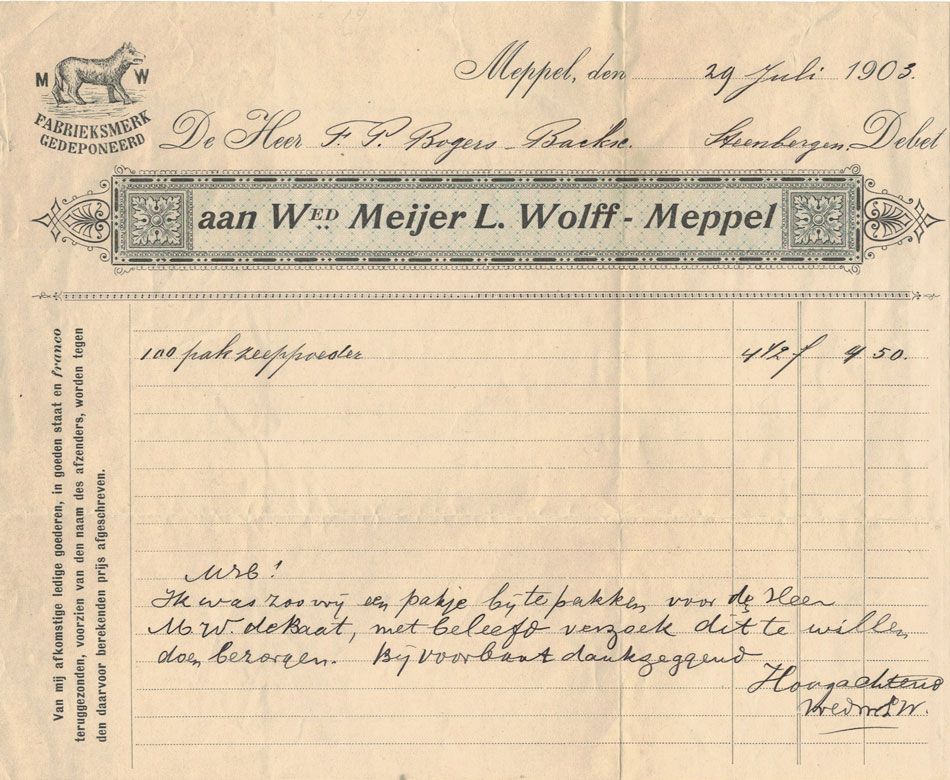 M W
FABRIEKSMERK
GEDEPONEERD
Meppel, den 29 Juli 1903.
De Heer F. P. Bogers - Backse. Steenbergen, Debet
aan WED Meijer L. Wolff - Meppel
100 pak zeeppoeder 4 1/2 f 4 50.
Mrb!
Ik was zoo vrij een pakje bij te pakken voor de Heer
M. W. de Baat, met beleefd verzoek dit te willen
doen bezorgen. Bij voorbaat dankzeggend
Hoogachtend
Van mij afkomstige ledige goederen, in goeden staat en franco
teruggezonden, voorzien van den naam des afzenders, worden tegen
den daarvoor berekenden prijs afgeschreven.